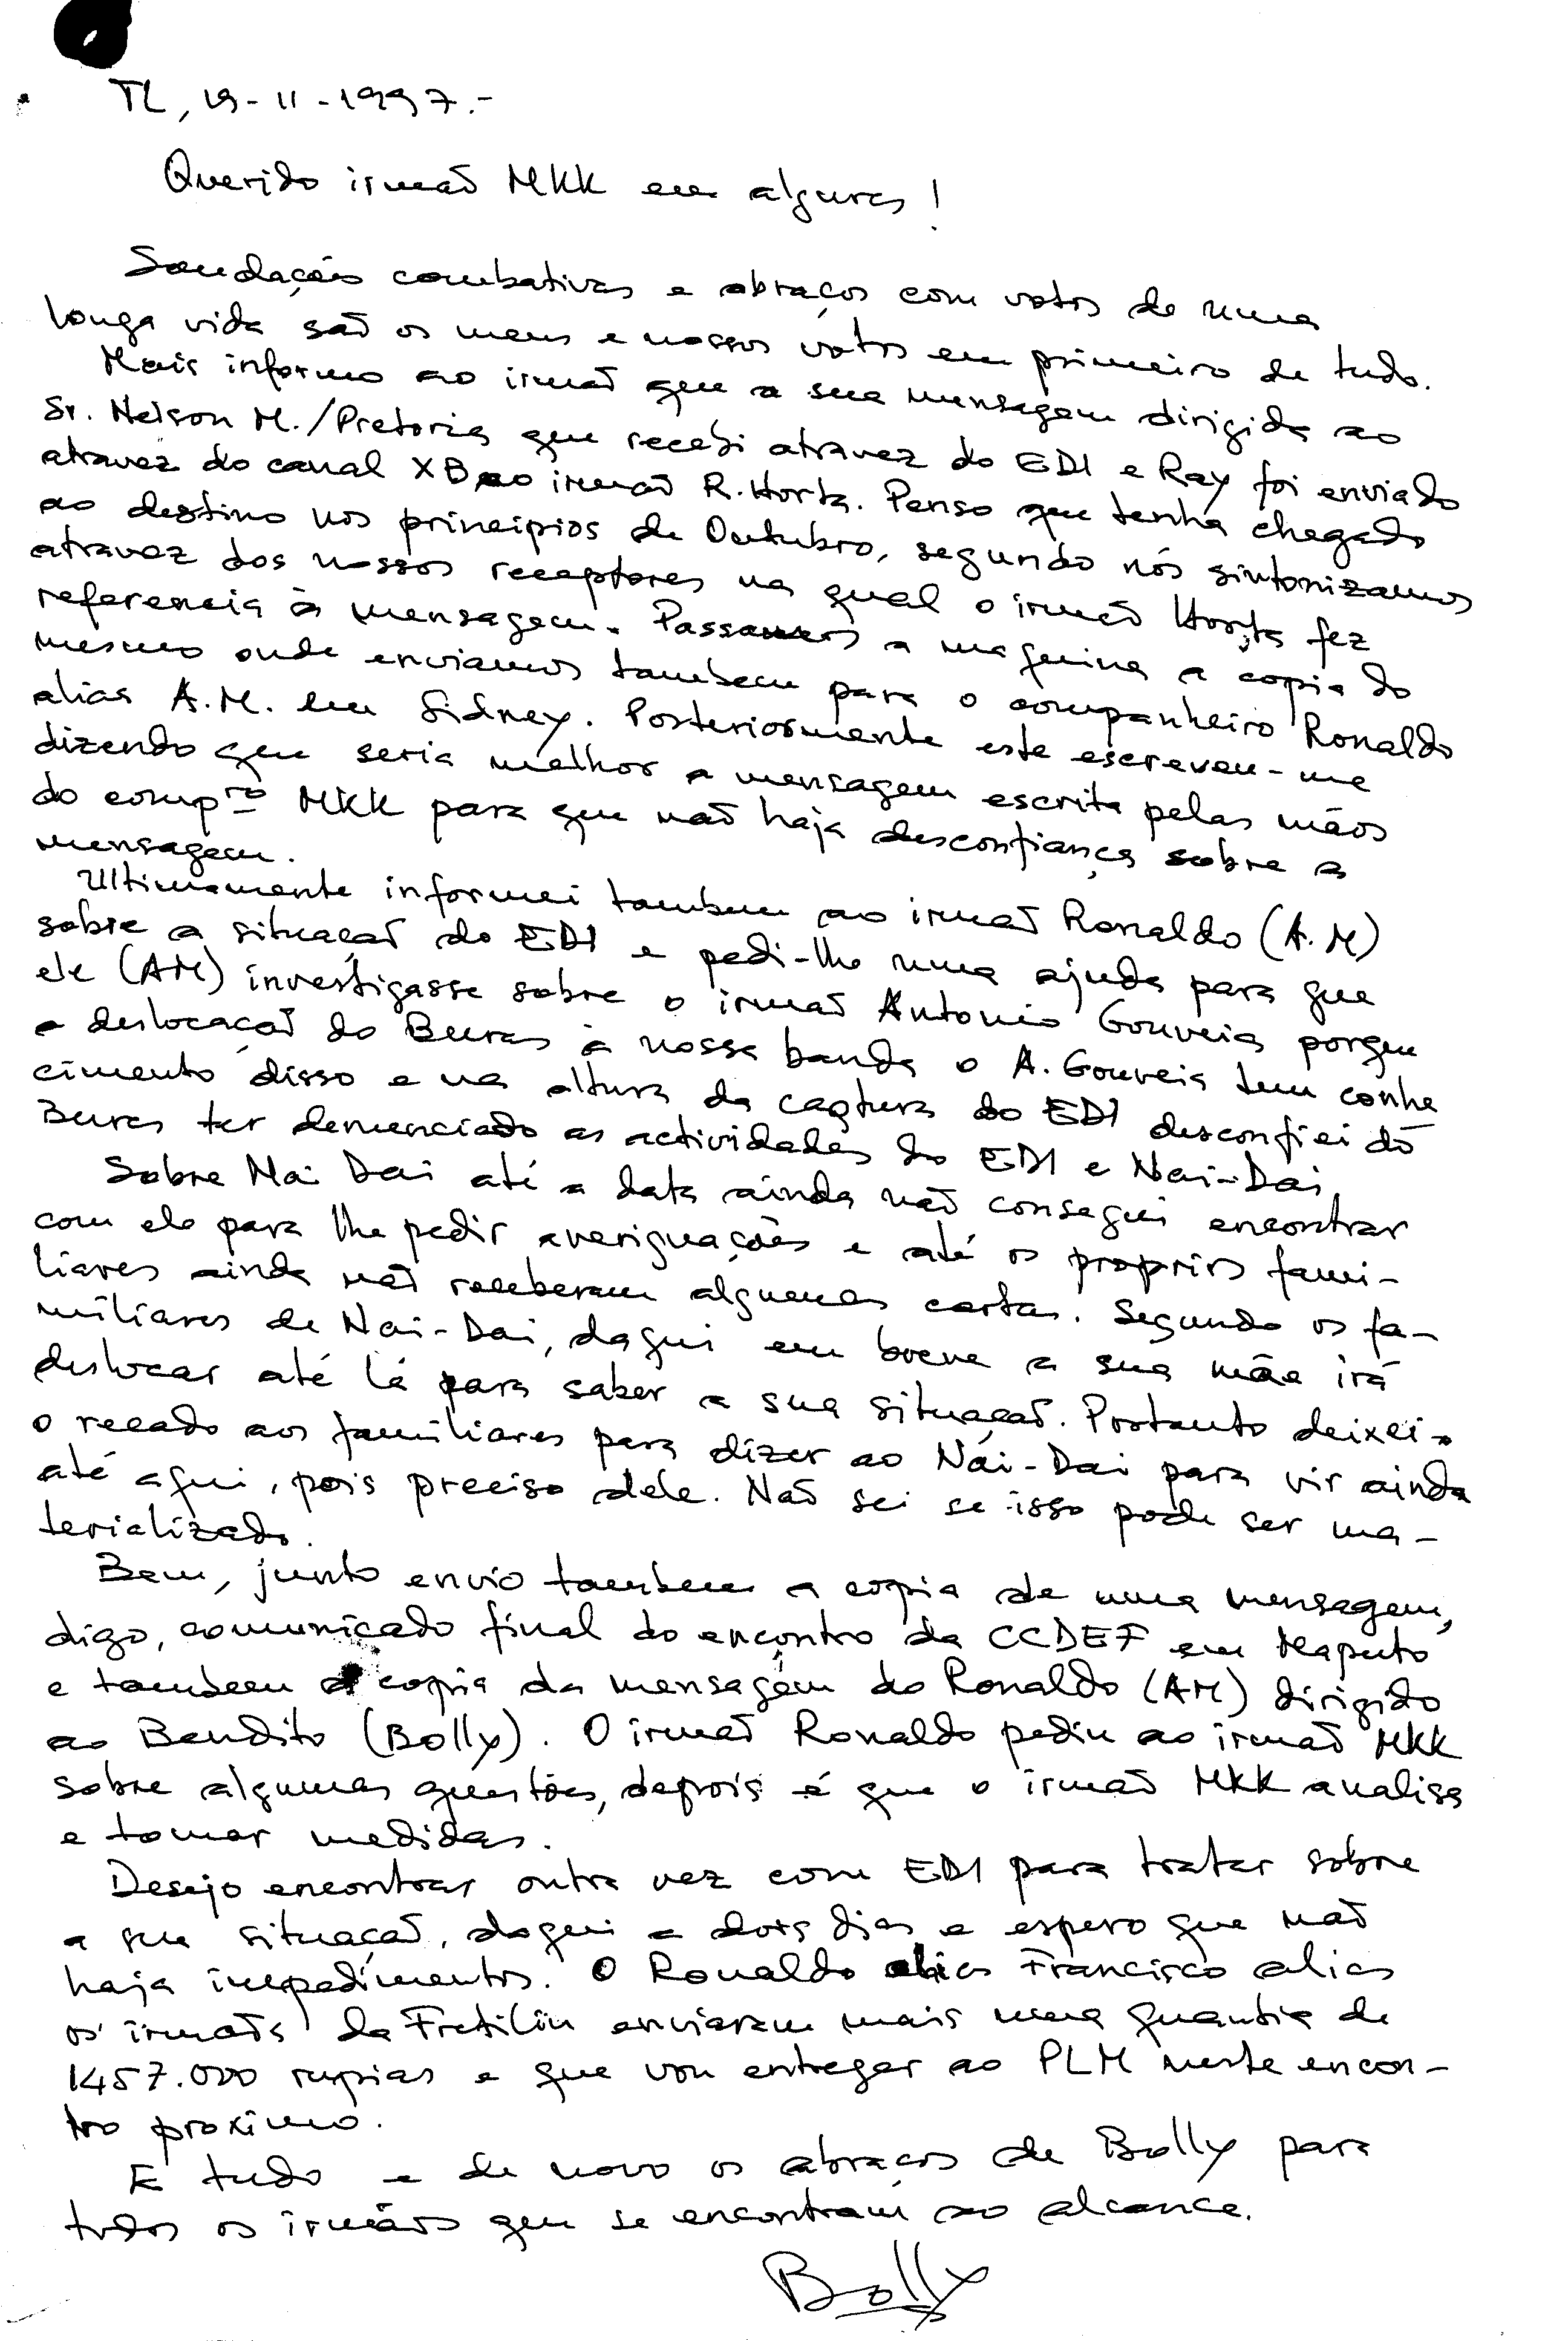 TL, 19-11-1997.-
Querido irmaõ MKK em algures!
Saudações combativas e abraços com votos de uma
longa vida saõ os meus e nossos votos em primeiro de tudo.
Mais informo ao irmaõ que a sua mensagem dirigida ao
Sr. Nelson M./Pretoria que recebi atravez do EDI e Ray foi enviado
atravez do canal XB ao irmaõ R. Horta. Penso que tenha chegado
ao destino nos principios de Outubro, segundo nós sintonizamos
atravez dos nossos receptores na qual o irmaõ Horta fez
referencia à mensagem. Passamos a maquina a copia do
mesmo onde enviamos tambem para o companheiro Ronaldo
alias A.M. em Sidney. Posteriormente este escreveu-me
dizendo que seria melhor a mensagem escrita pelas mãos
do compro MKK para que naõ haja desconfiança sobre a
mensagem.
Ultimamente informei tambem ao irmaõ Ronaldo (A.M)
sobre a situaçaõ do EDI e pedi-lhe uma ajuda para que
ele (AM) investigasse sobre o irmaõ Antonio Gouveia porque
a deslocaçaõ do Buras à nossa banda o A. Gouveia tem conhe
cimento disso e na altura da captura do EDI desconfiei do
Buras ter denunciado as actividades do EDI e Nai-Dai.
Sobre Nai Dai até a data ainda naõ consegui encontrar
com ele para lhe pedir averiguações e até os proprios fami-
liares ainda naõ receberam algumas cartas. Segundo os fa-
miliares de Nai-Dai, daqui em breve a sua mãe irá
deslocar até lá para saber a sua situaçaõ. Portanto deixei
o recado aos familiares para dizer ao Nai-Dai para vir ainda
até aqui, pois preciso dele. Naõ sei se isso pode ser ma-
terializado.
Bem, junto envio tambem a copia de uma mensagem,
digo, comunicado final do encontro da CCDEF em Maputo
e tambem copia da mensagem do Ronaldo (AM) dirigido
ao Bendito (Bolly). O irmaõ Ronaldo pediu ao irmaõ MKK
sobre algumas questões, depois é que o irmaõ MKK analisa
e tomar medidas.
Desejo encontrar outra vez com EDI para tratar sobre
a sua situaçaõ, daqui a dois dias e espero que naõ
haja impedimentos. O Ronaldo alias Francisco alias
os irmaõs da Fretilin enviaram mais uma quantia de
1457.000 rupias e que vou entregar ao PLM neste encon-
tro proximo.
E tudo e de novo os abraços de Bolly para
todos os irmãos que se encontram ao alcance.
Bolly